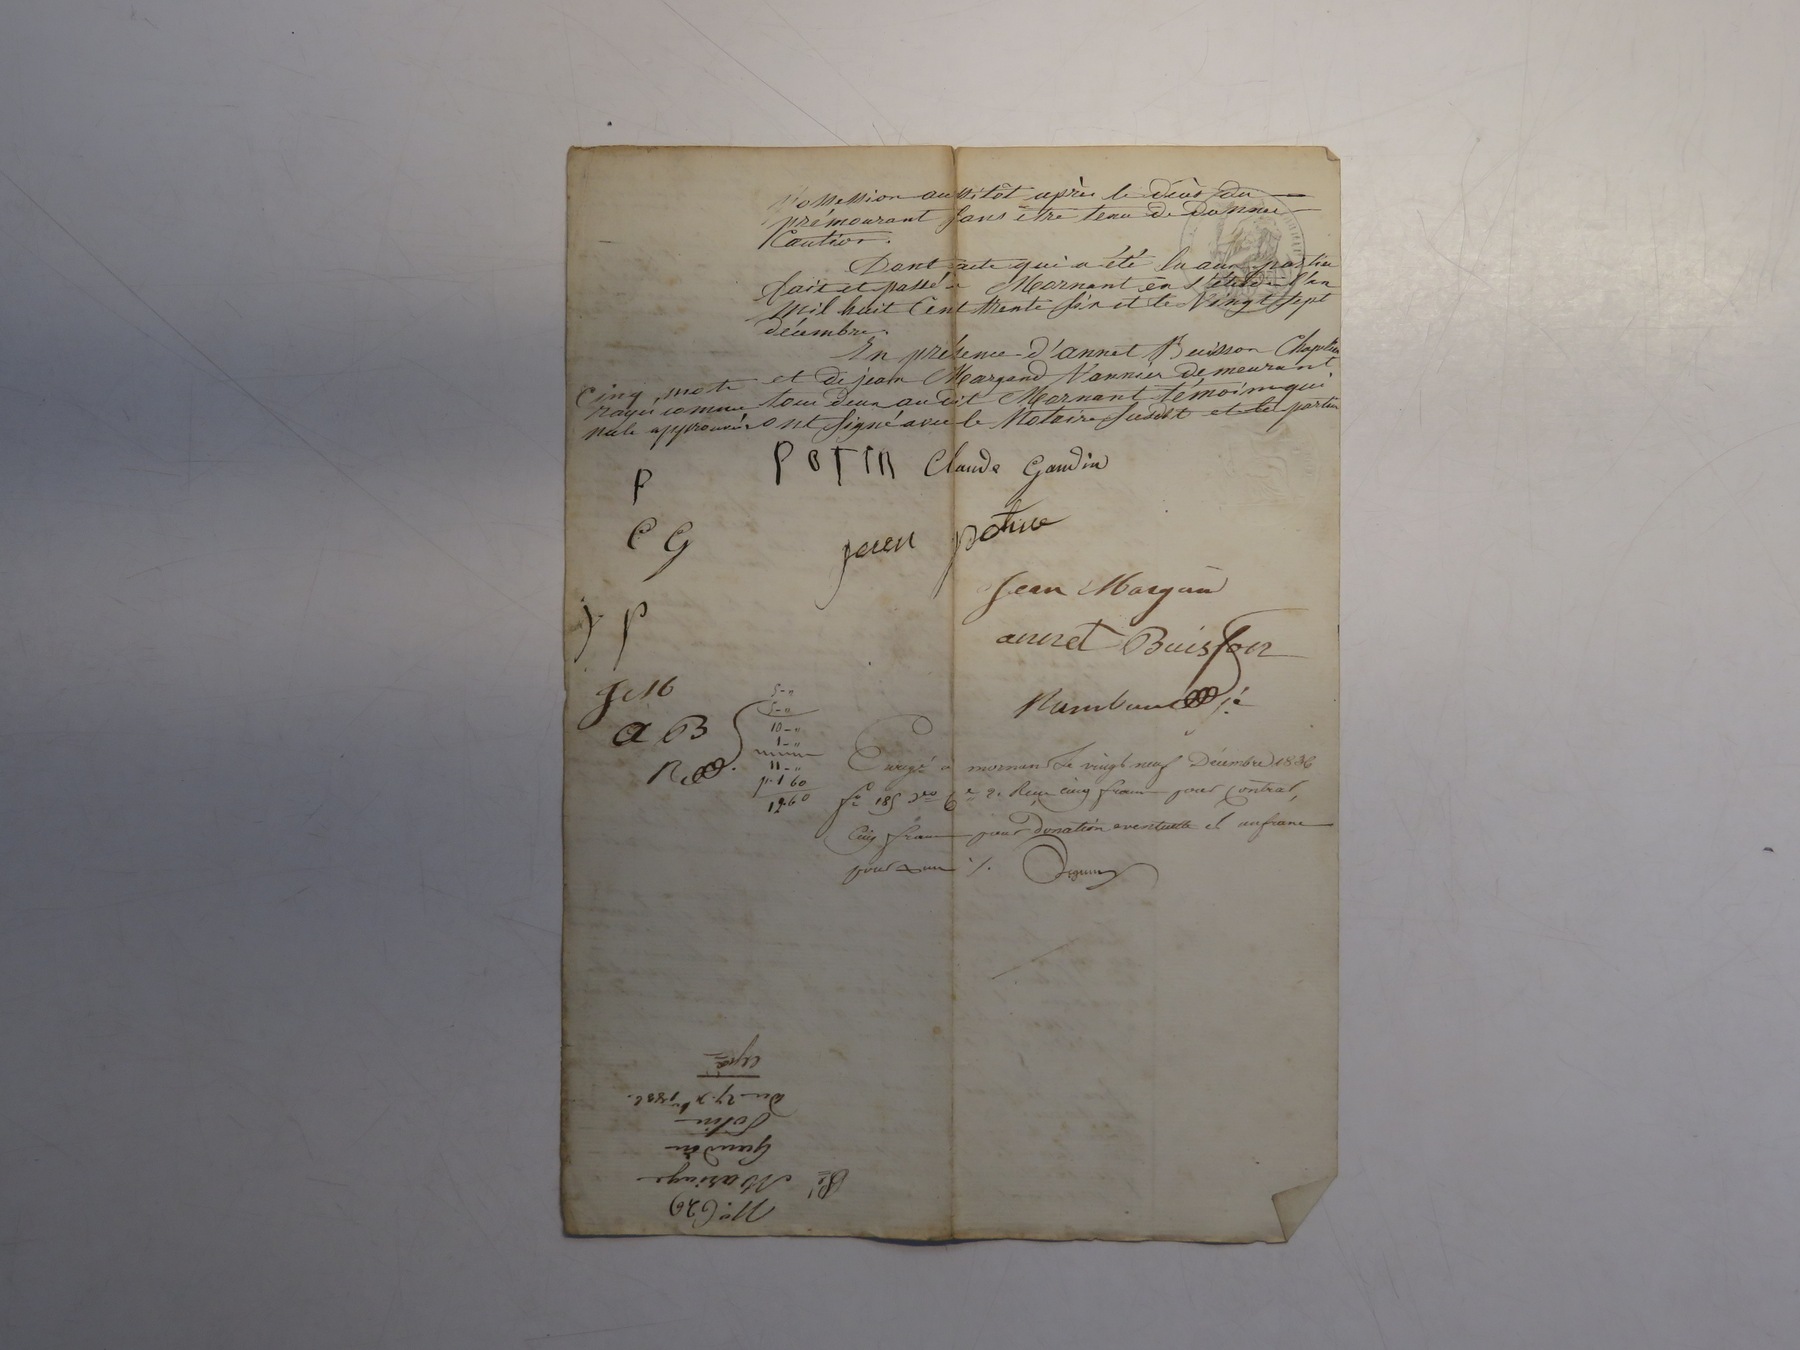 Possession aussitôt après le décès du
prémourant sans être tenu de donner
Caution.
Dont acte qui a été lu aux parties
fait et passé à Mornant en l'étude l'an
Mil huit Cent trente six et le Vingt sept
décembre.
En présence d'annet Buisson Chapelier
et de jean Margand Vannier demeurant
tous deux audit Mornant témoins qui
ont signé avec le Notaire susdit et les parties
Cinq mots
rayés comme
nuls approuvés
POTIN Claude Gaudin
P
C G
jean potin
j P
Jean Margand
annet Buisson
J M
a B
R
5-"
5-"
10-"
1-"
11-"
p. 1 60
12.60
Enregé à mornant Le vingt neuf Décembre 1836
fo 185 Vo Ce 2. Reçu cinq francs pour contrat,
Cinq francs pour donation eventuelle et un franc
pour
No. 629
Mariage
Gaudin
Potin
Du 27 Xbre
Expé